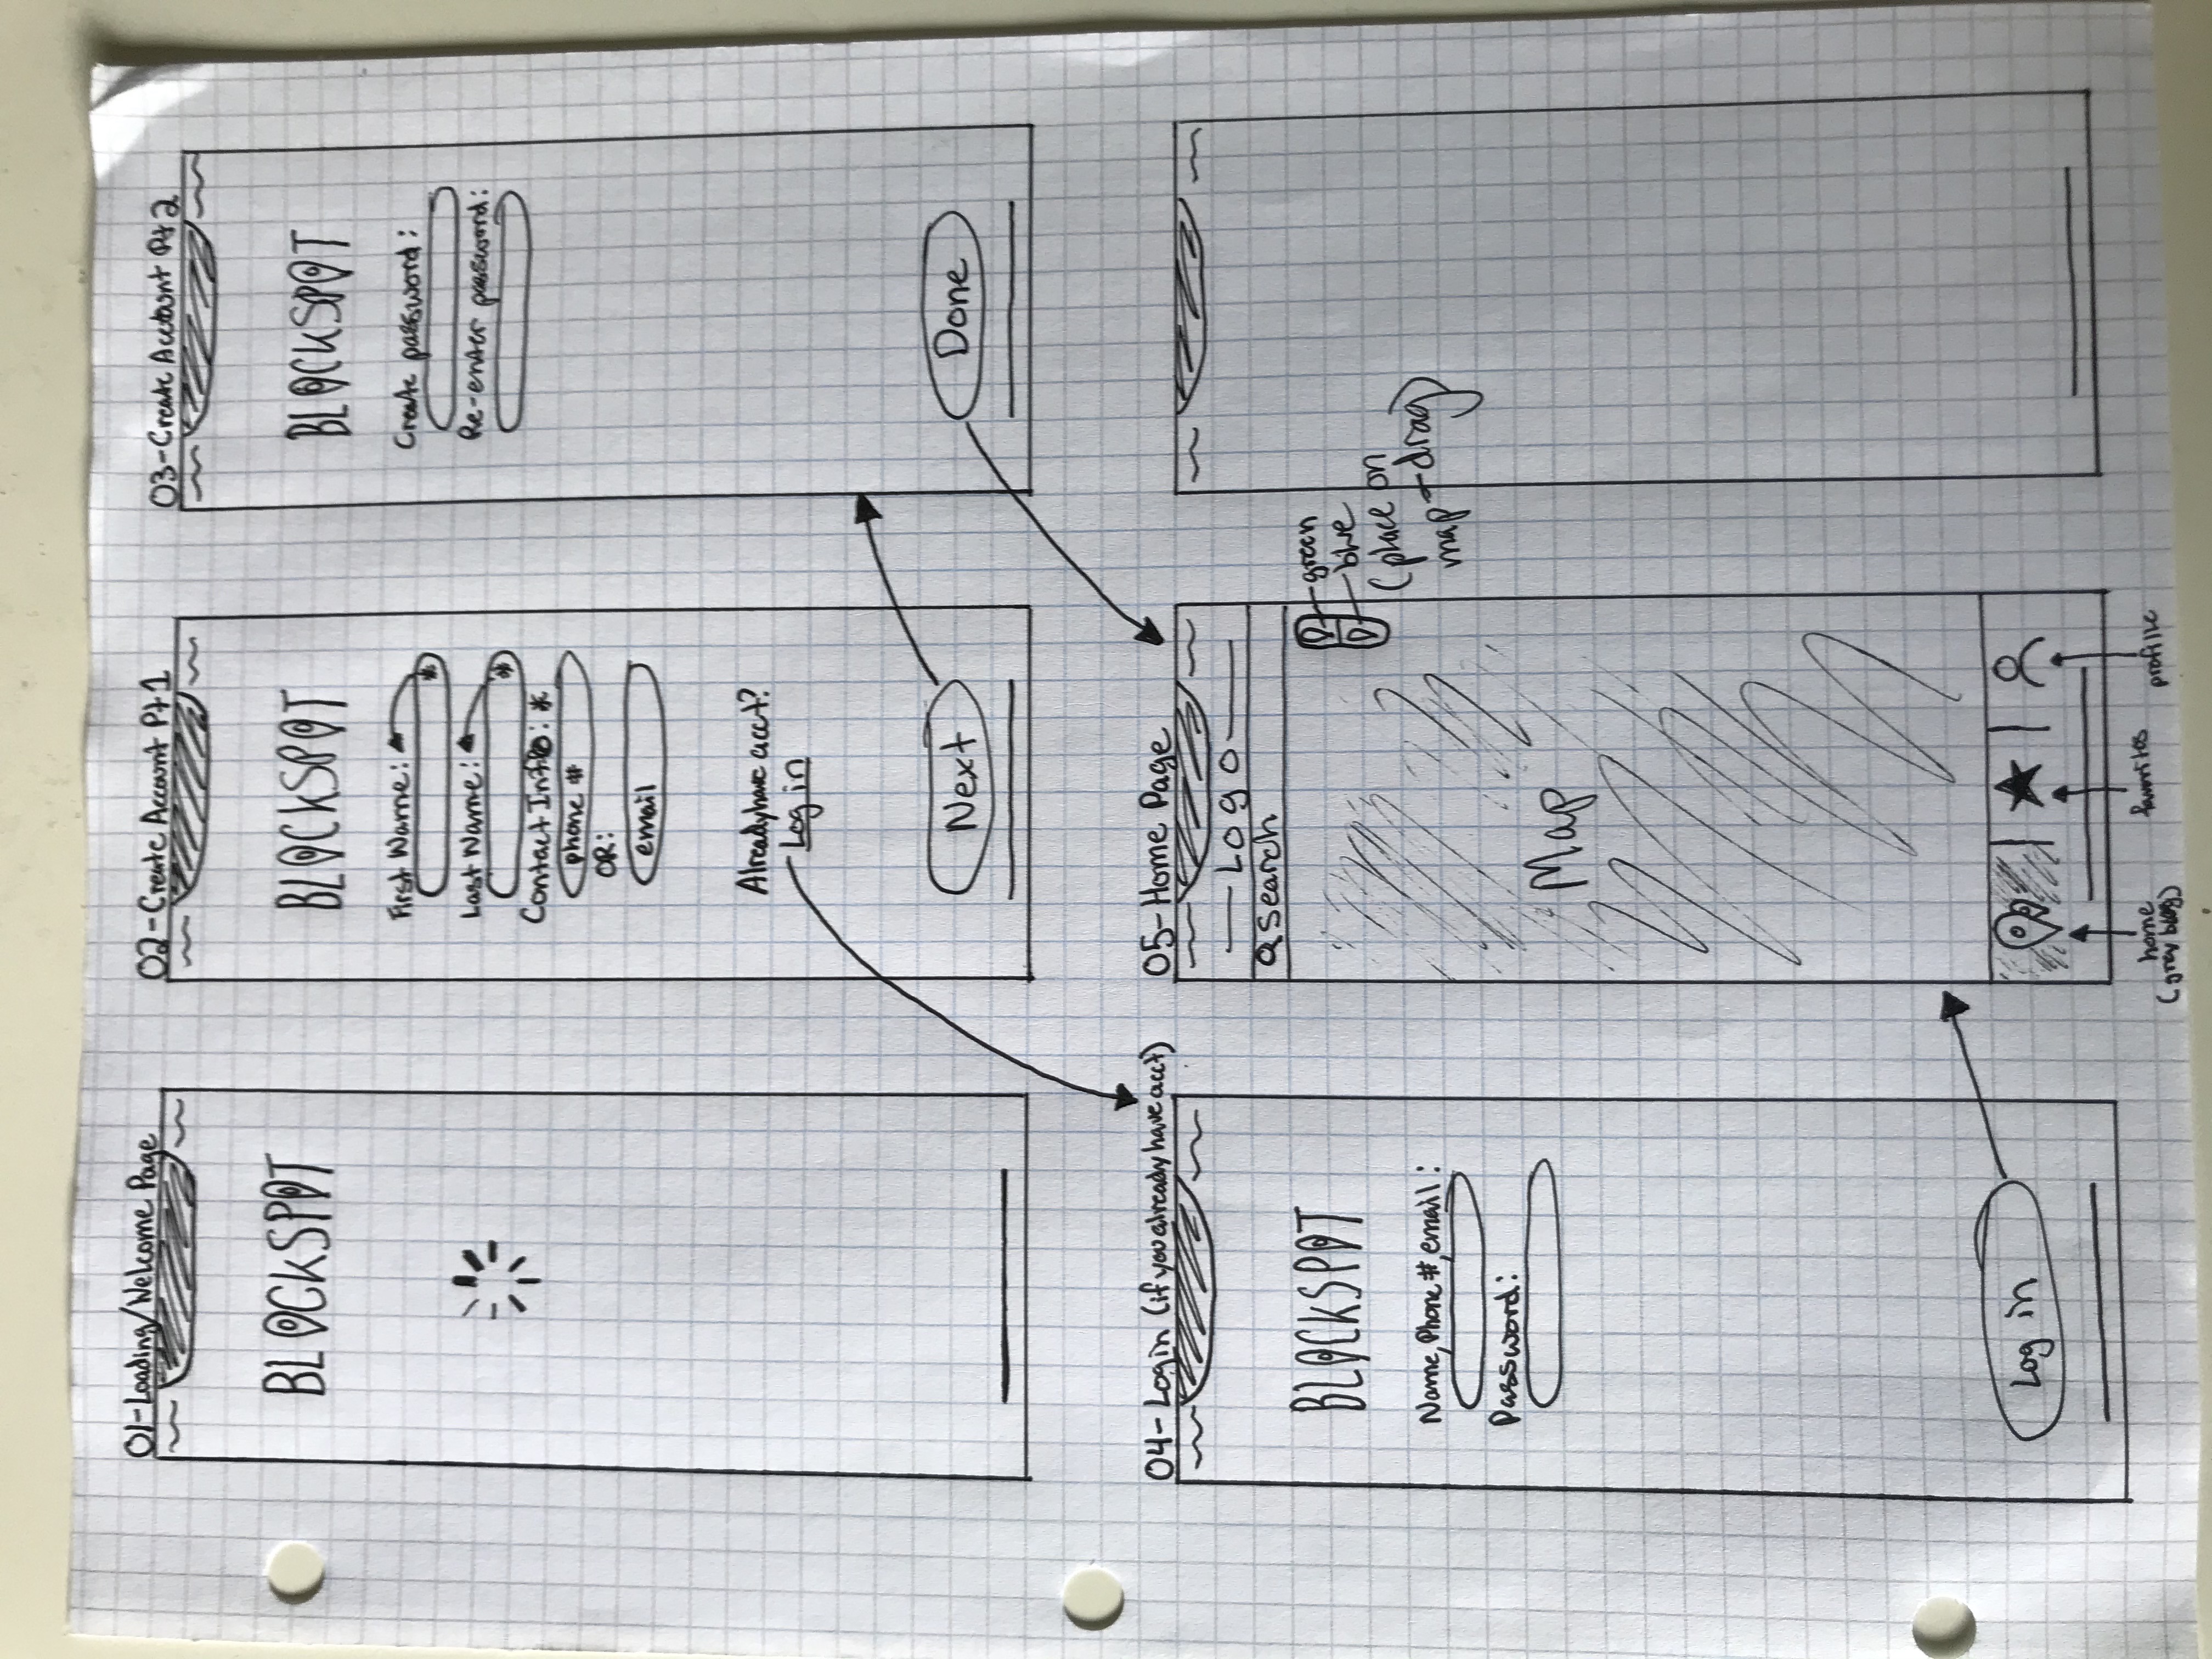 01-Loading/Welcome Page
BLOCKSPOT
02-Create Account Pt 1
BLOCKSPOT
First Name:
*
Last Name:
*
Contact Info: *
phone #
OR:
email
Already have acct?
Log in
Next
03-Create Account Pt 2
BLOCKSPOT
Create password:
Re-enter password:
Done
04-Login (if you already have acct)
BLOCKSPOT
Name, Phone #, email:
Password:
Log in
05-Home Page
Logo
Search
green
blue
(place on
map-drag)
Map
home
favorites
profile